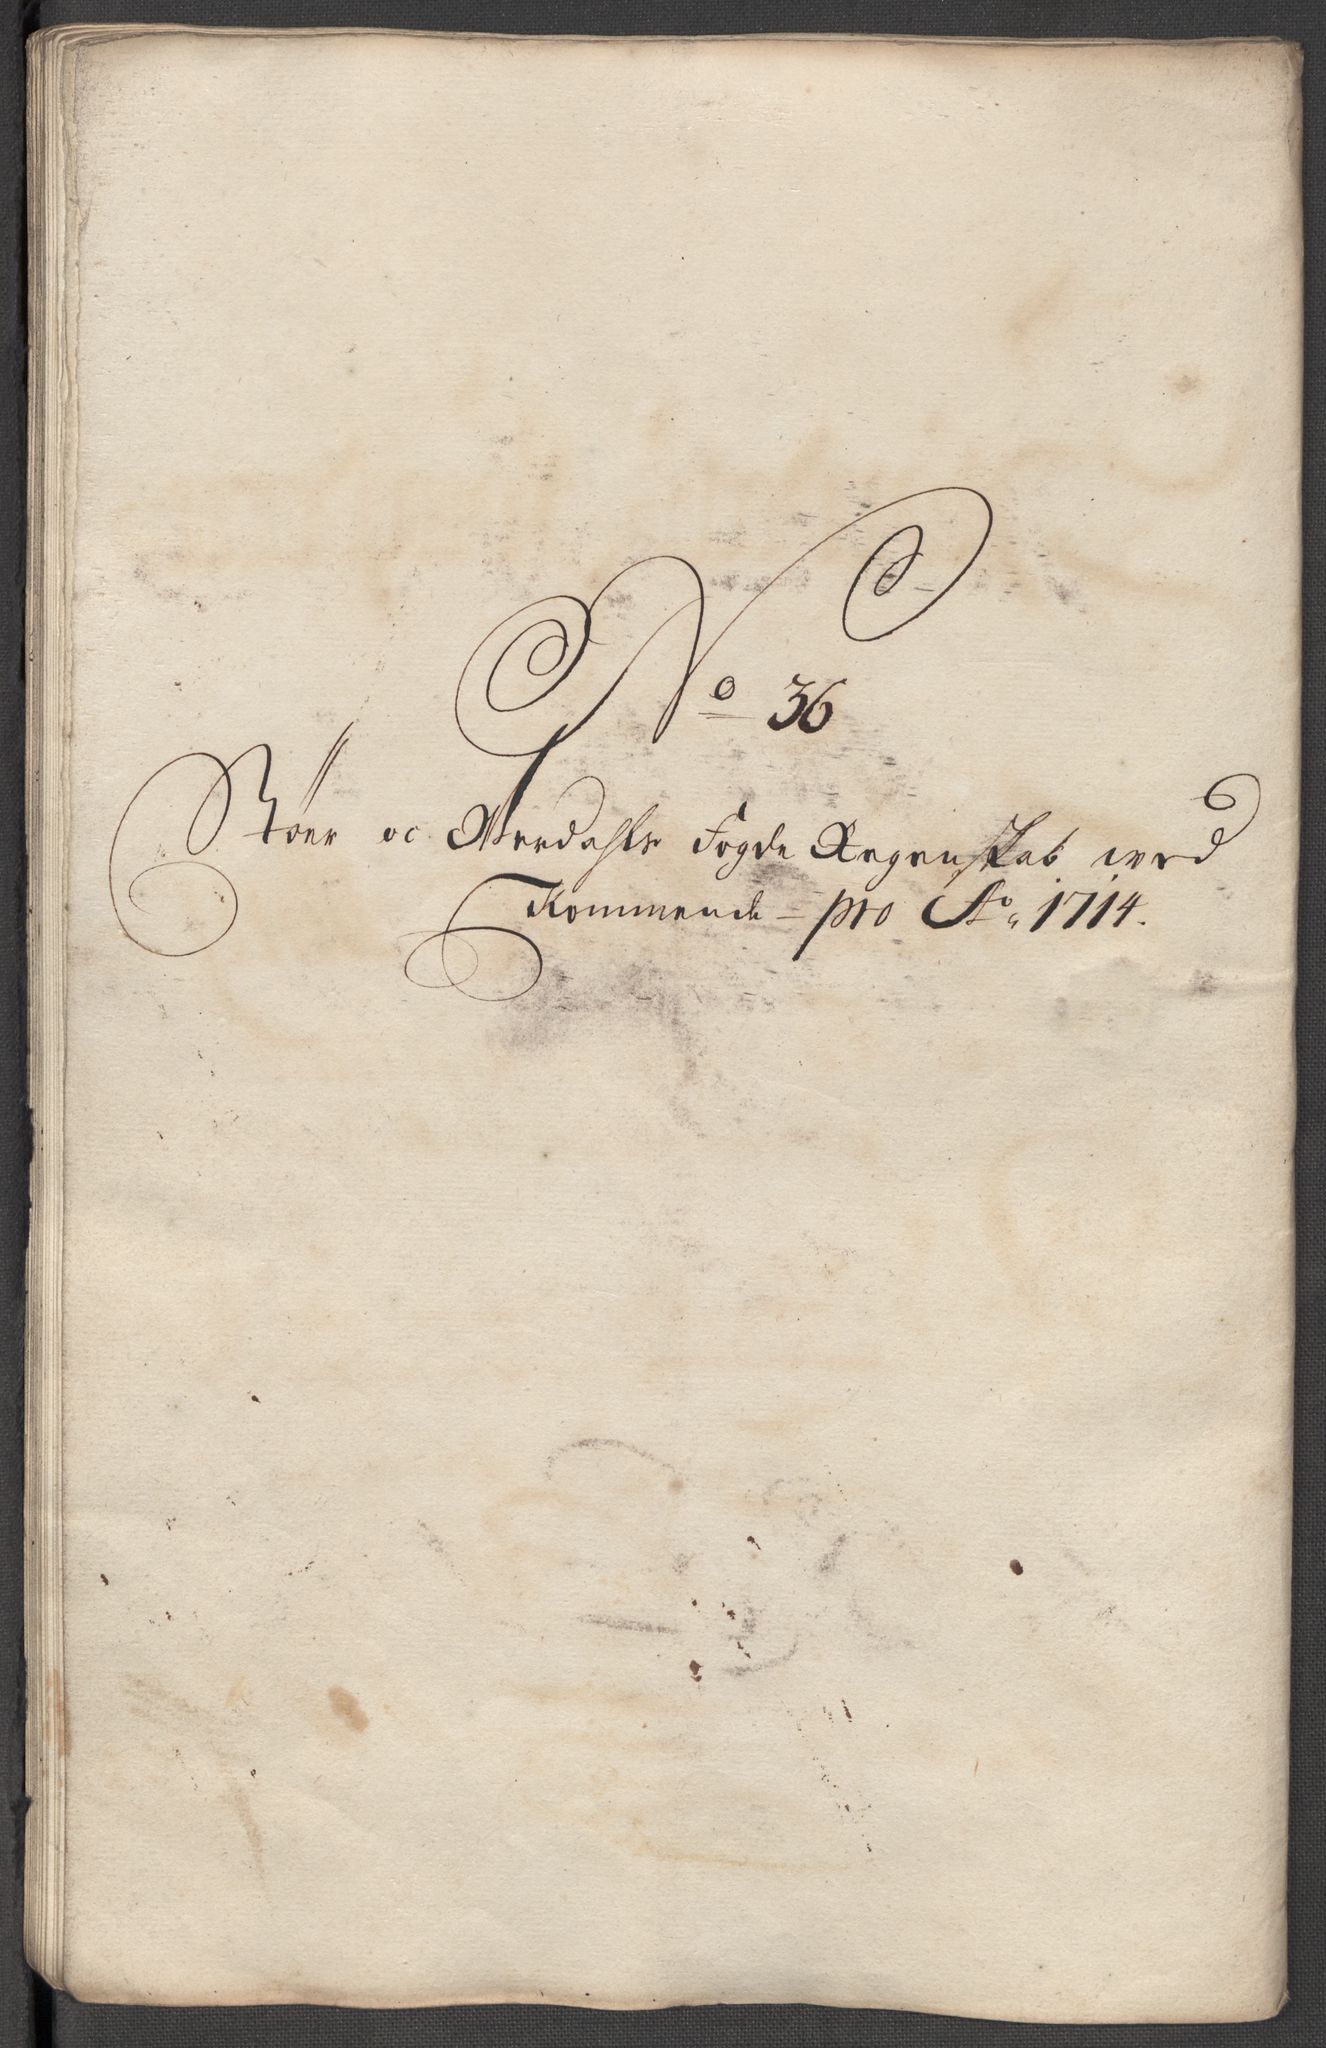 No 36
Støer oc Werdahls Fogde Regenskab wed
Kommende - pro Ao, 1714.